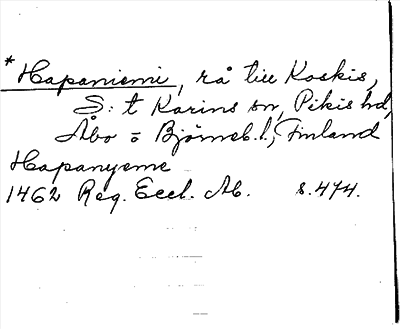 *Hapaniemi, rå till Koskis,
S:t Karins sn, Pikis hd,
Åbo o Björneb. l., Finland
Hapanyeme
1462 Reg. Eccl. Ab. s. 474.